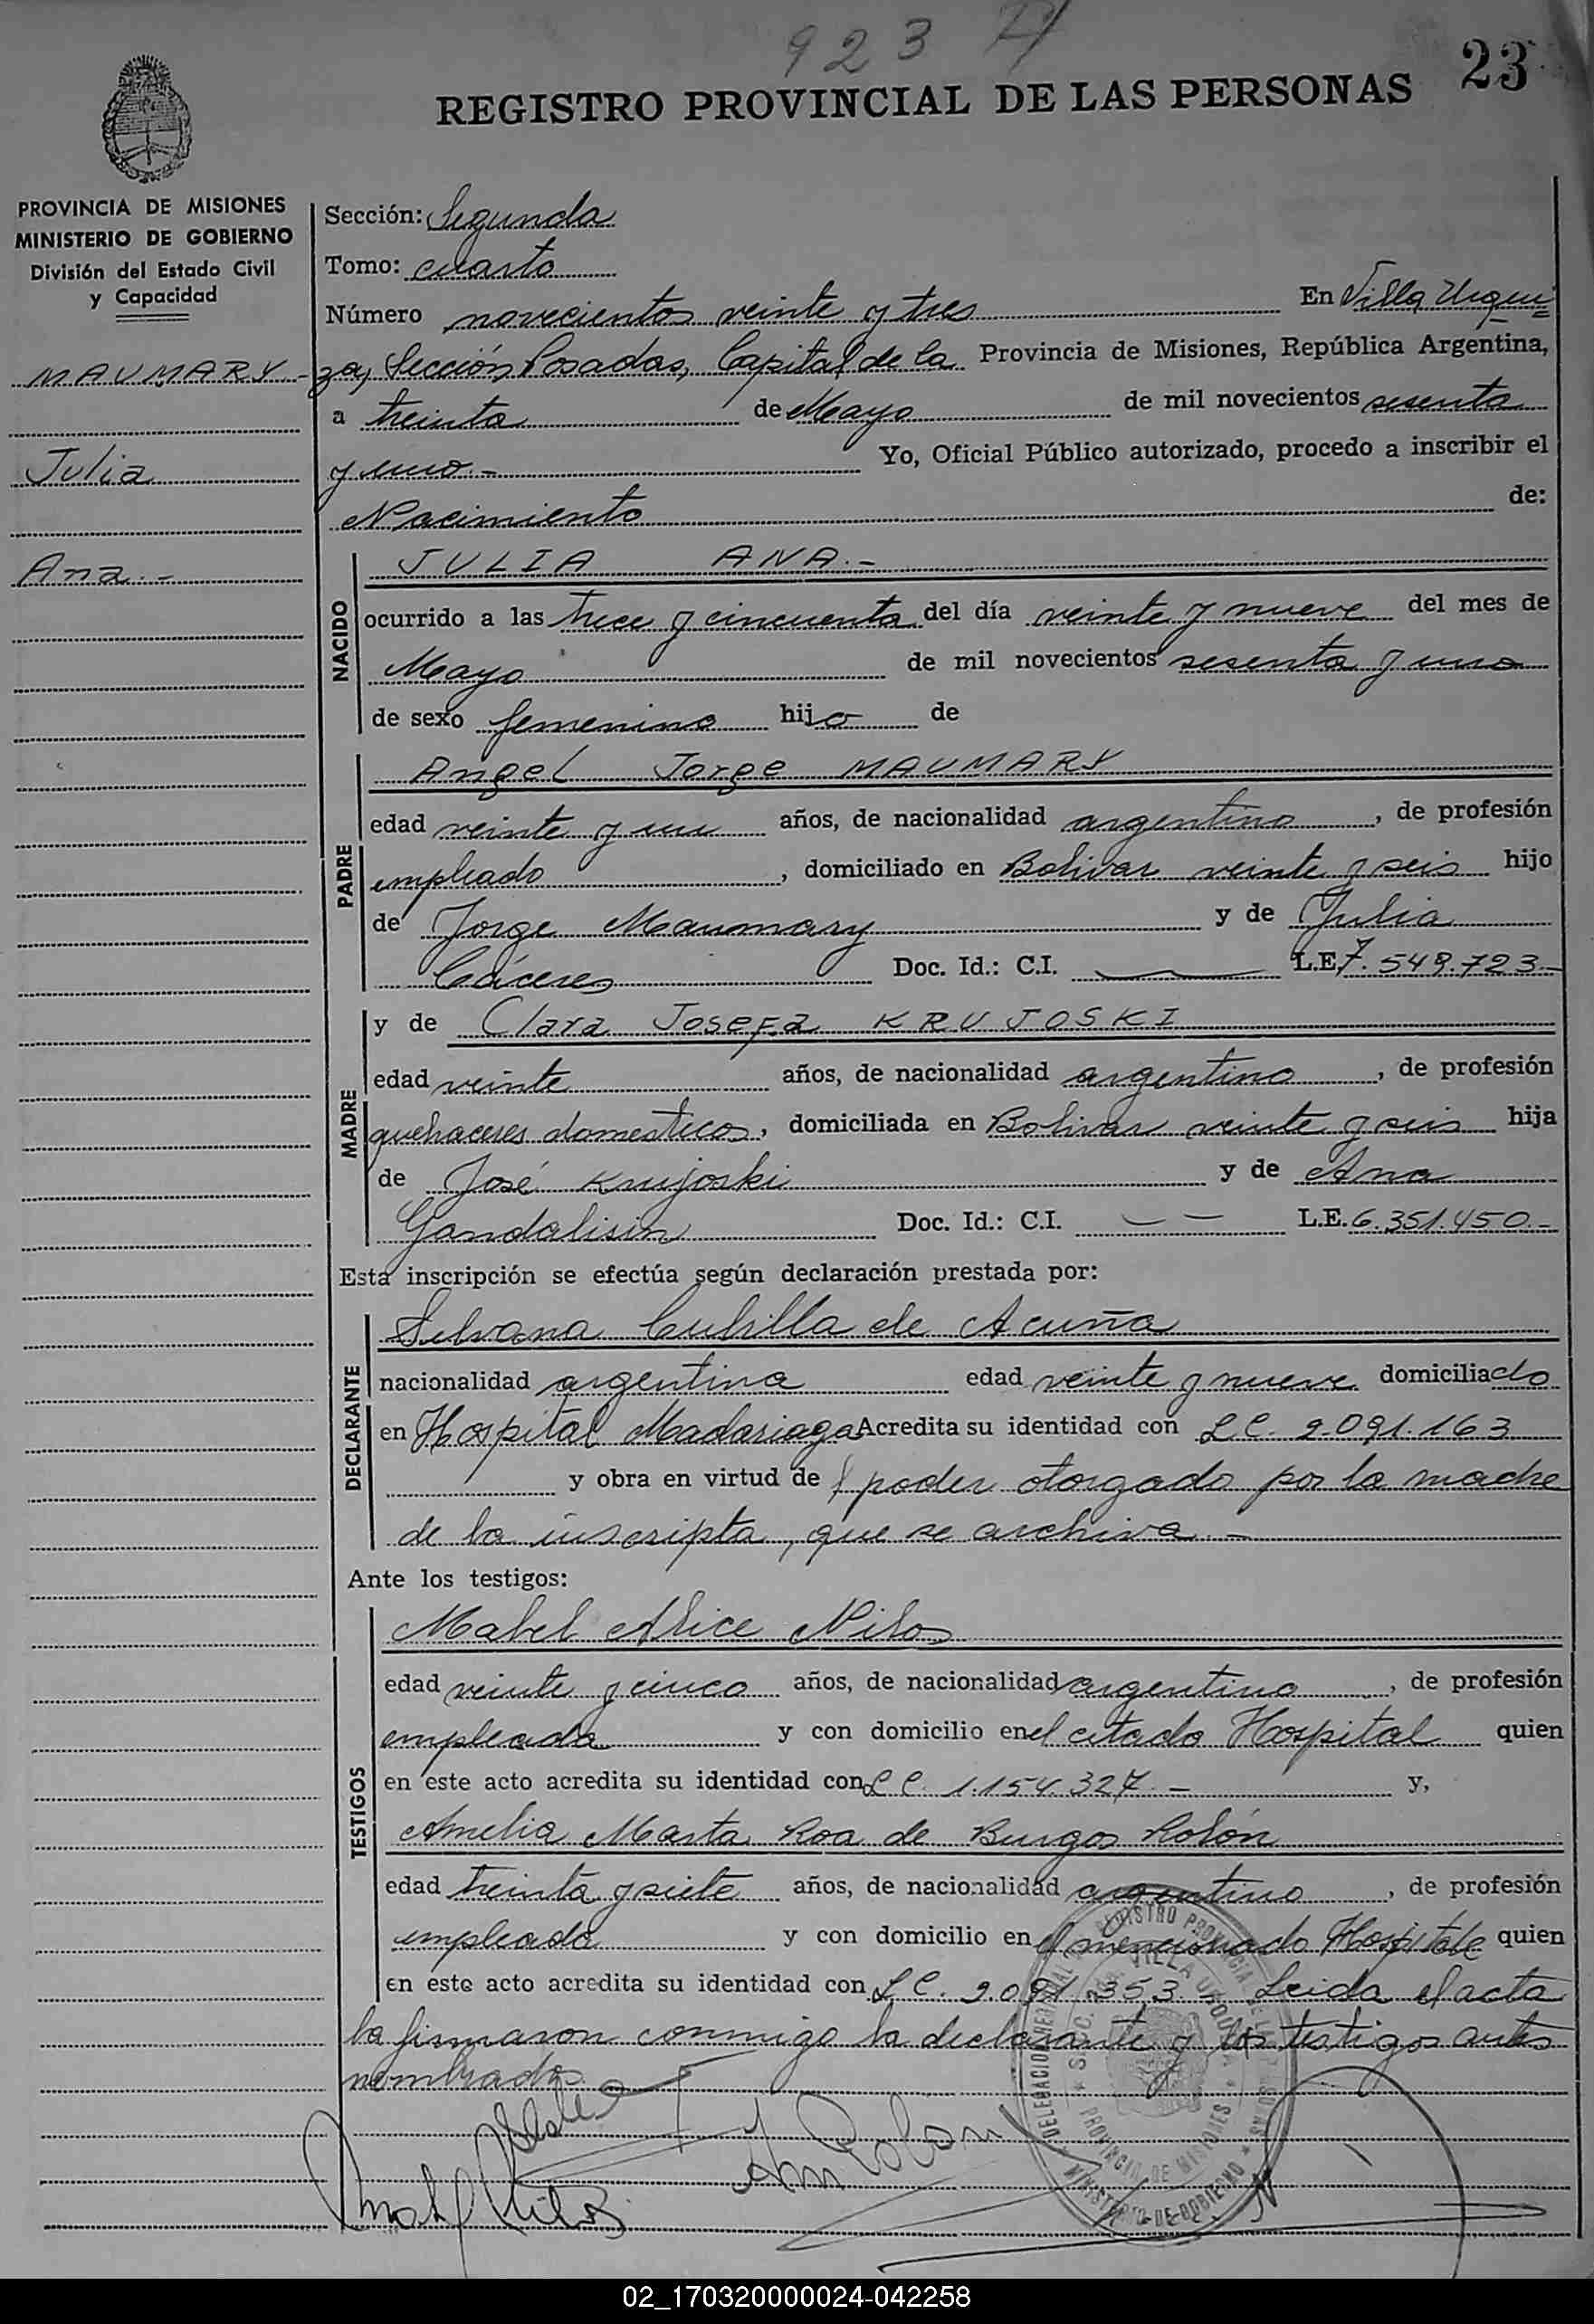 923
23
REGISTRO PROVINCIAL DE LAS PERSONAS
PROVINCIA DE MISIONES
MINISTERIO DE GOBIERNO
División del Estado Civil
y Capacidad
MAUMARY -
Julia
Ana.-
Sección: Segunda
Tomo: cuarto
Número novecientos veinte y tres En Villa Urqui=
za, Sección Posadas, Capital de la Provincia de Misiones, República Argentina,
a treinta de Mayo de mil novecientos sesenta
y uno.- Yo, Oficial Público autorizado, procedo a inscribir el
Nacimiento de:
NACIDO
JULIA ANA.-
ocurrido a las trece y cincuenta del día veinte y nueve del mes de
Mayo de mil novecientos sesenta y uno
de sexo femenino hijo de
PADRE
Angel Jorge MAUMARY
edad veinte y un años, de nacionalidad argentino, de profesión
empleado, domiciliado en Bolivar veinte y seis hijo
de Jorge Maumary y de Julia
Cáceres Doc. Id.: C.I. L.E. 7.549.723.-
MADRE
y de Clara Josefa KRUJOSKI
edad veinte años, de nacionalidad argentino, de profesión
quehaceres domesticos, domiciliada en Bolivar veinte y seis hija
de José Krujoski y de Ana
Gandalisin Doc. Id.: C.I. — — L.E. 6.351.450.-
Esta inscripción se efectúa según declaración prestada por:
DECLARANTE
Silvana Cubilla de Acuña
nacionalidad argentina edad veinte y nueve domiciliado
en Hospital Madariaga Acredita su identidad con L.C. 2.091.163
y obra en virtud de poder otorgado por la madre
de la inscripta, que se archiva.-
Ante los testigos:
TESTIGOS
Mabel Alice Nilos
edad veinte y cinco años, de nacionalidad argentino, de profesión
empleada y con domicilio en el citado Hospital quien
en este acto acredita su identidad con L C. 1.154.327.- y,
Amelia Marta Roa de Burgos Rolón
edad treinta y siete años, de nacionalidad argentino, de profesión
empleada y con domicilio en el mencionado Hospital quien
en este acto acredita su identidad con L C. 2.091.353. Leida el acta
la firmaron conmigo la declarante y los testigos antes
nombrados
Mabel Nilos
Am Rolon
REGISTRO PROVINCIAL DE LAS PERSONAS
VILLA URQUIZA
PROVINCIA DE MISIONES
MINISTERIO DE GOBIERNO
02_170320000024-042258